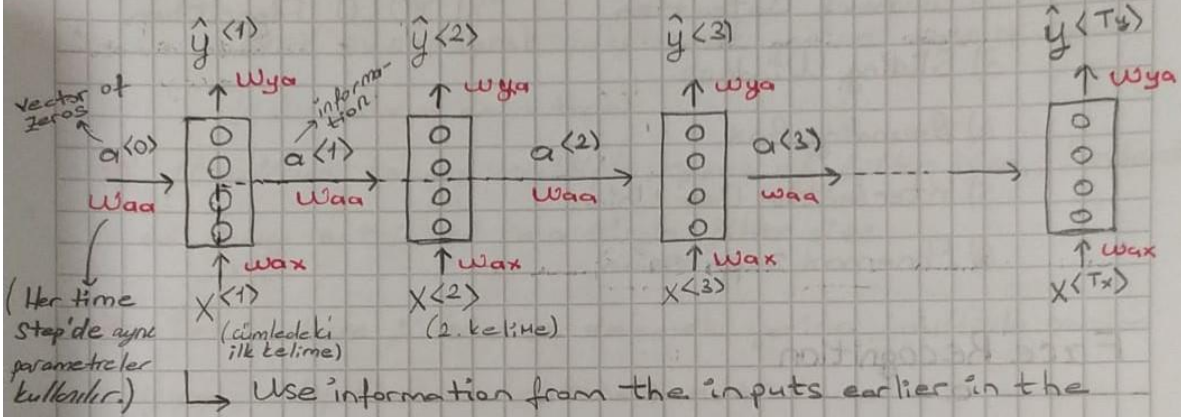 ŷ<1> ŷ<2> ŷ<3> ŷ<Ty>
Wya Wya Wya Wya
vector of
zeros
informa-
tion
a<0> a<1> a<2> a<3>
Waa Waa Waa Waa
Wax Wax Wax Wax
x<1> x<2> x<3> x<Tx>
(cümledeki
ilk kelime)
(2. kelime)
(Her time
step'de aynı
parametreler
kullanılır.)
↳ Use information from the inputs earlier in the